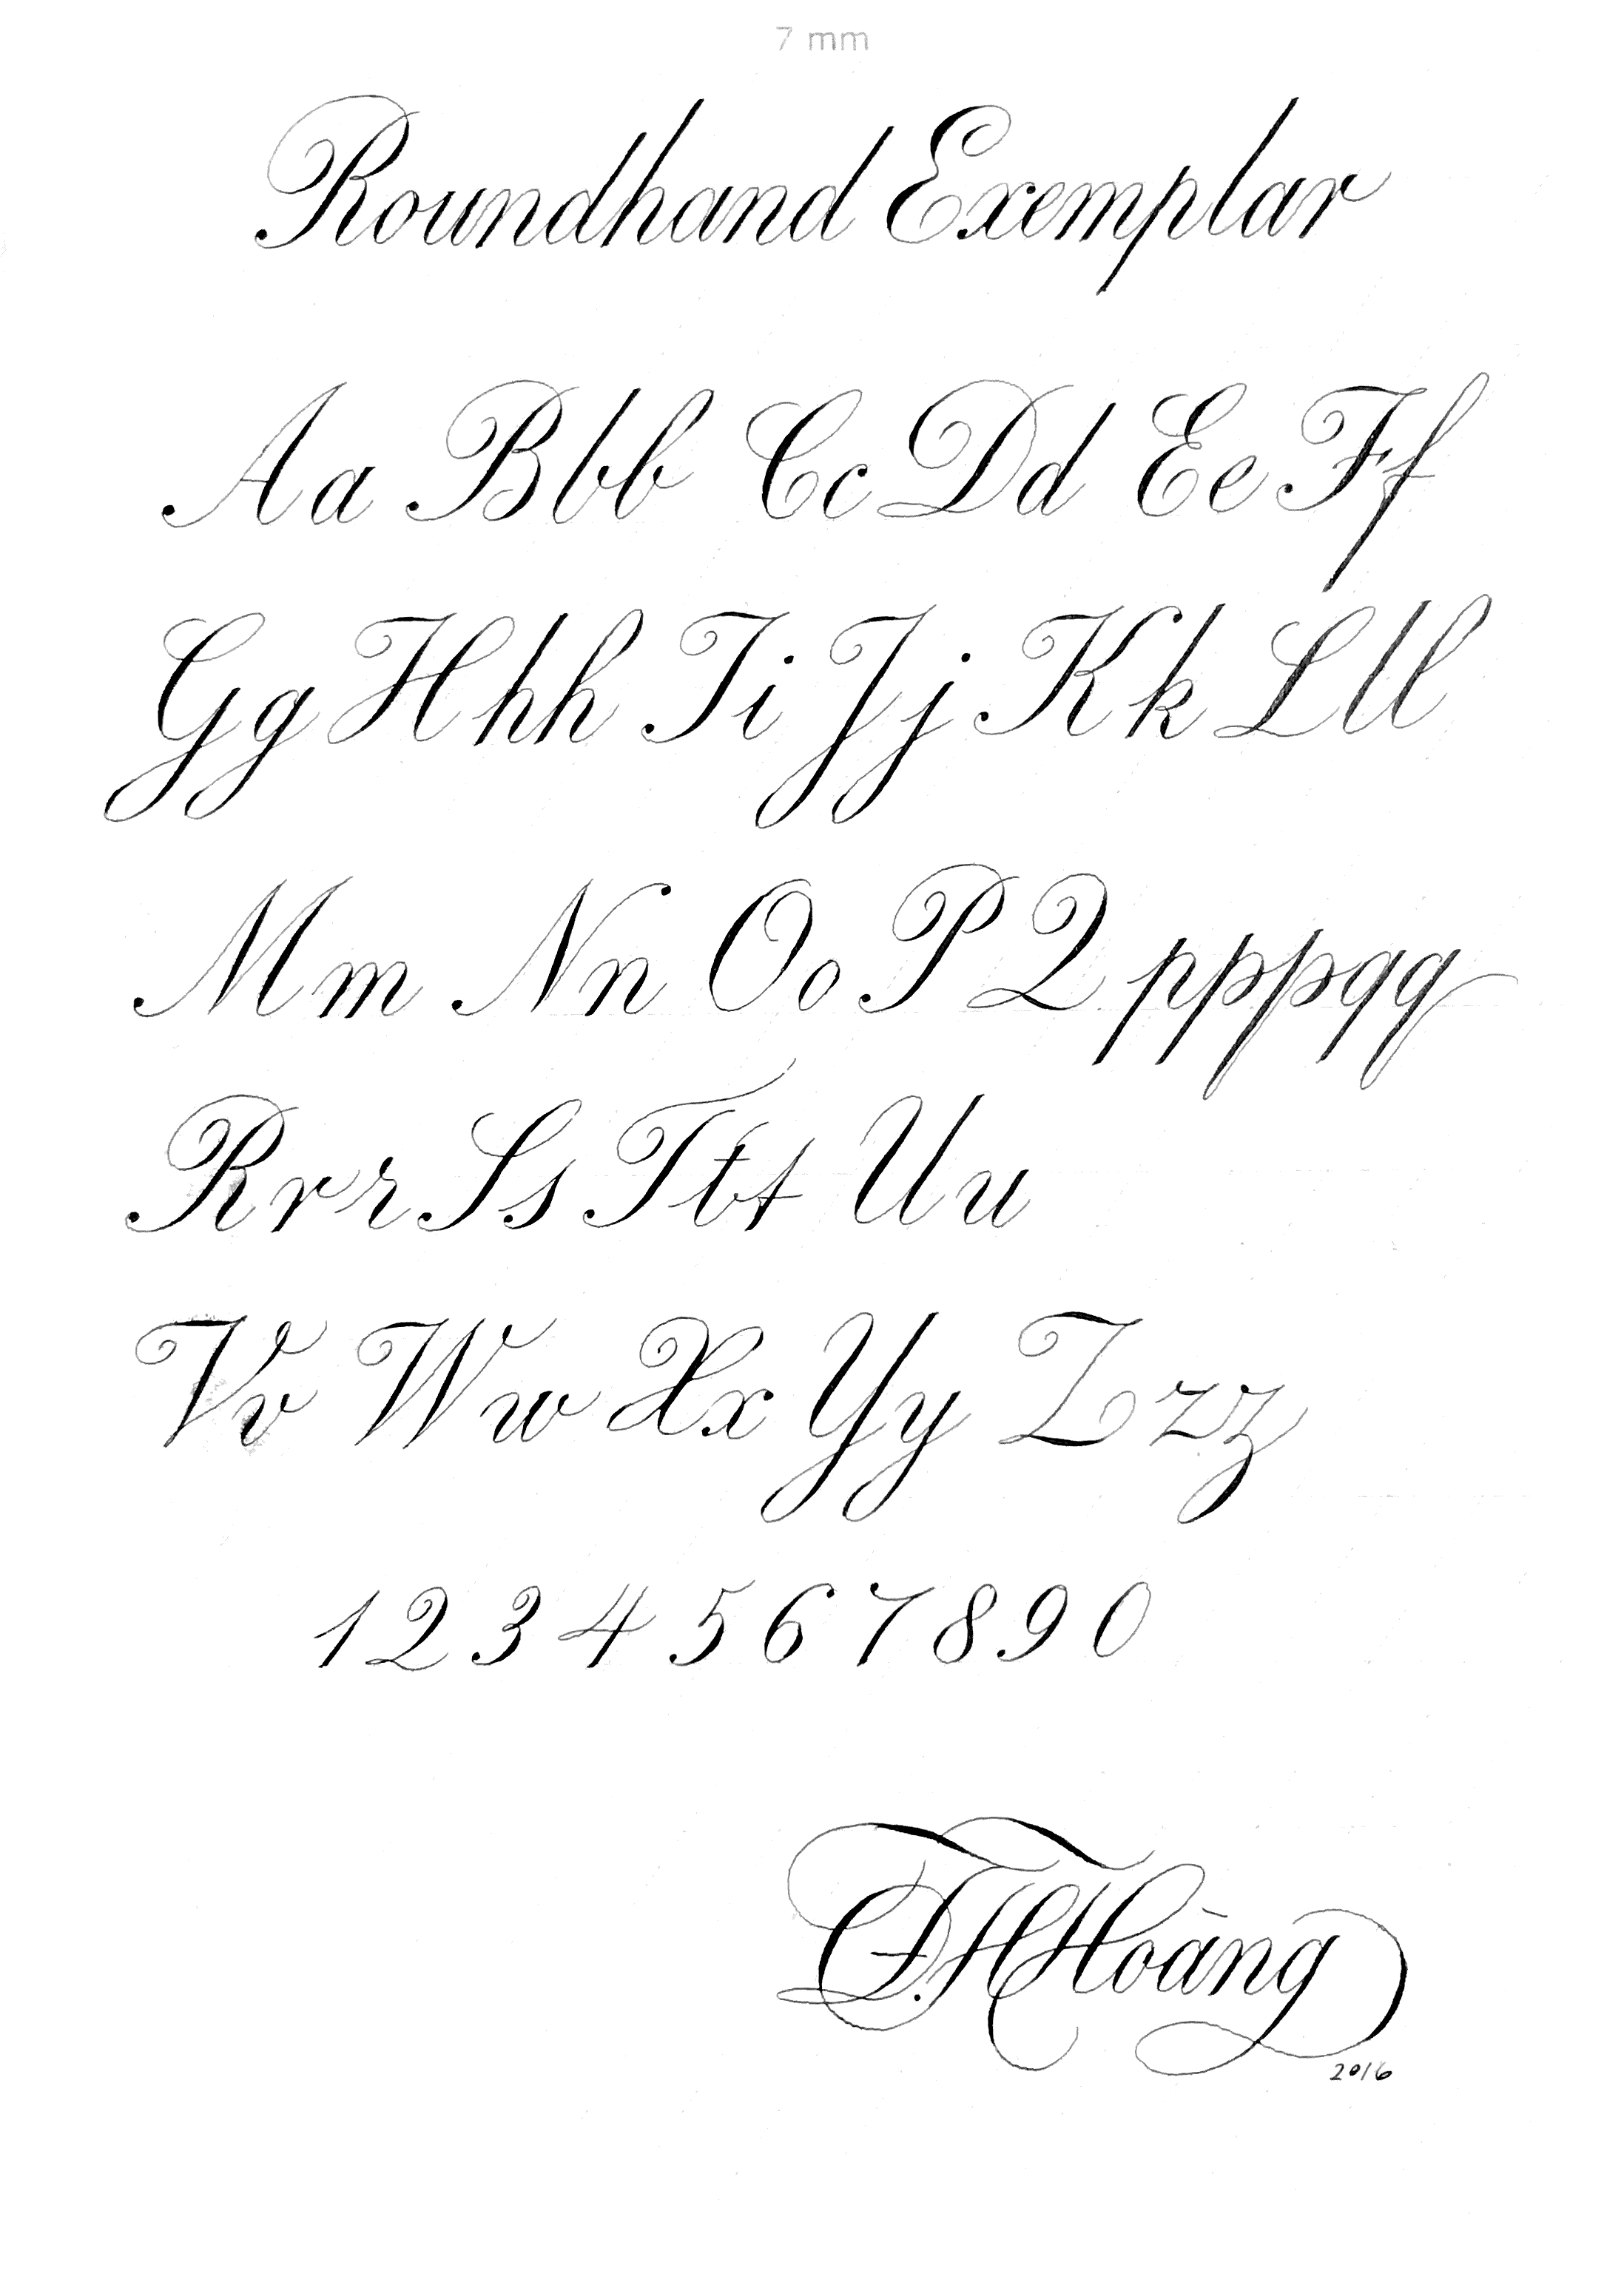 7 mm
Roundhand Exemplar
Aa Bbb Cc Dd Ee Ff
Gg Hhh Ii Jj Kk Lll
Mm Nn Oo P Q pppqq
Rrr Ss Ttt Uu
Vv Ww Xx Yy Zzz
1 2 3 4 5 6 7 8 9 0
Hoàng
2016